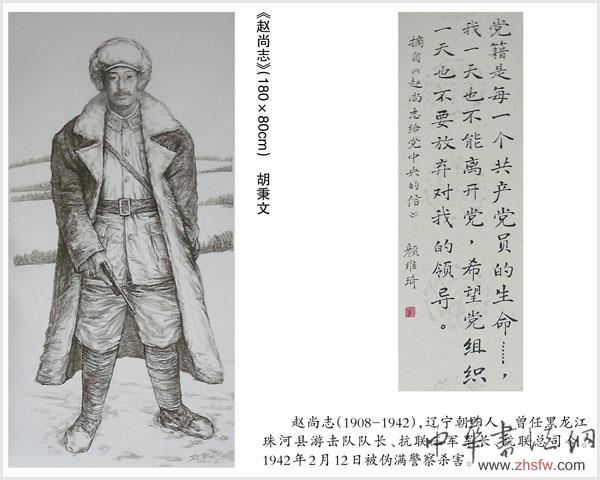 《赵尚志》(180×80cm) 胡秉文
党籍是每一个共产党员的生命……,
我一天也不能离开党,希望党组织
一天也不要放弃对我的领导。
摘自《赵尚志给党中央的信》 颜维琦
赵尚志(1908-1942),辽宁朝阳人,曾任黑龙江
珠河县游击队队长、抗联三军军长、抗联总司令。
1942年2月12日被伪满警察杀害。
中华书法网
www.zhsfw.com